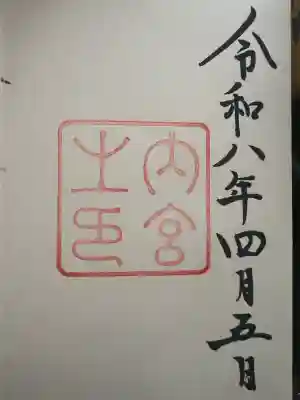 令和八年四月五日
内宮
之印